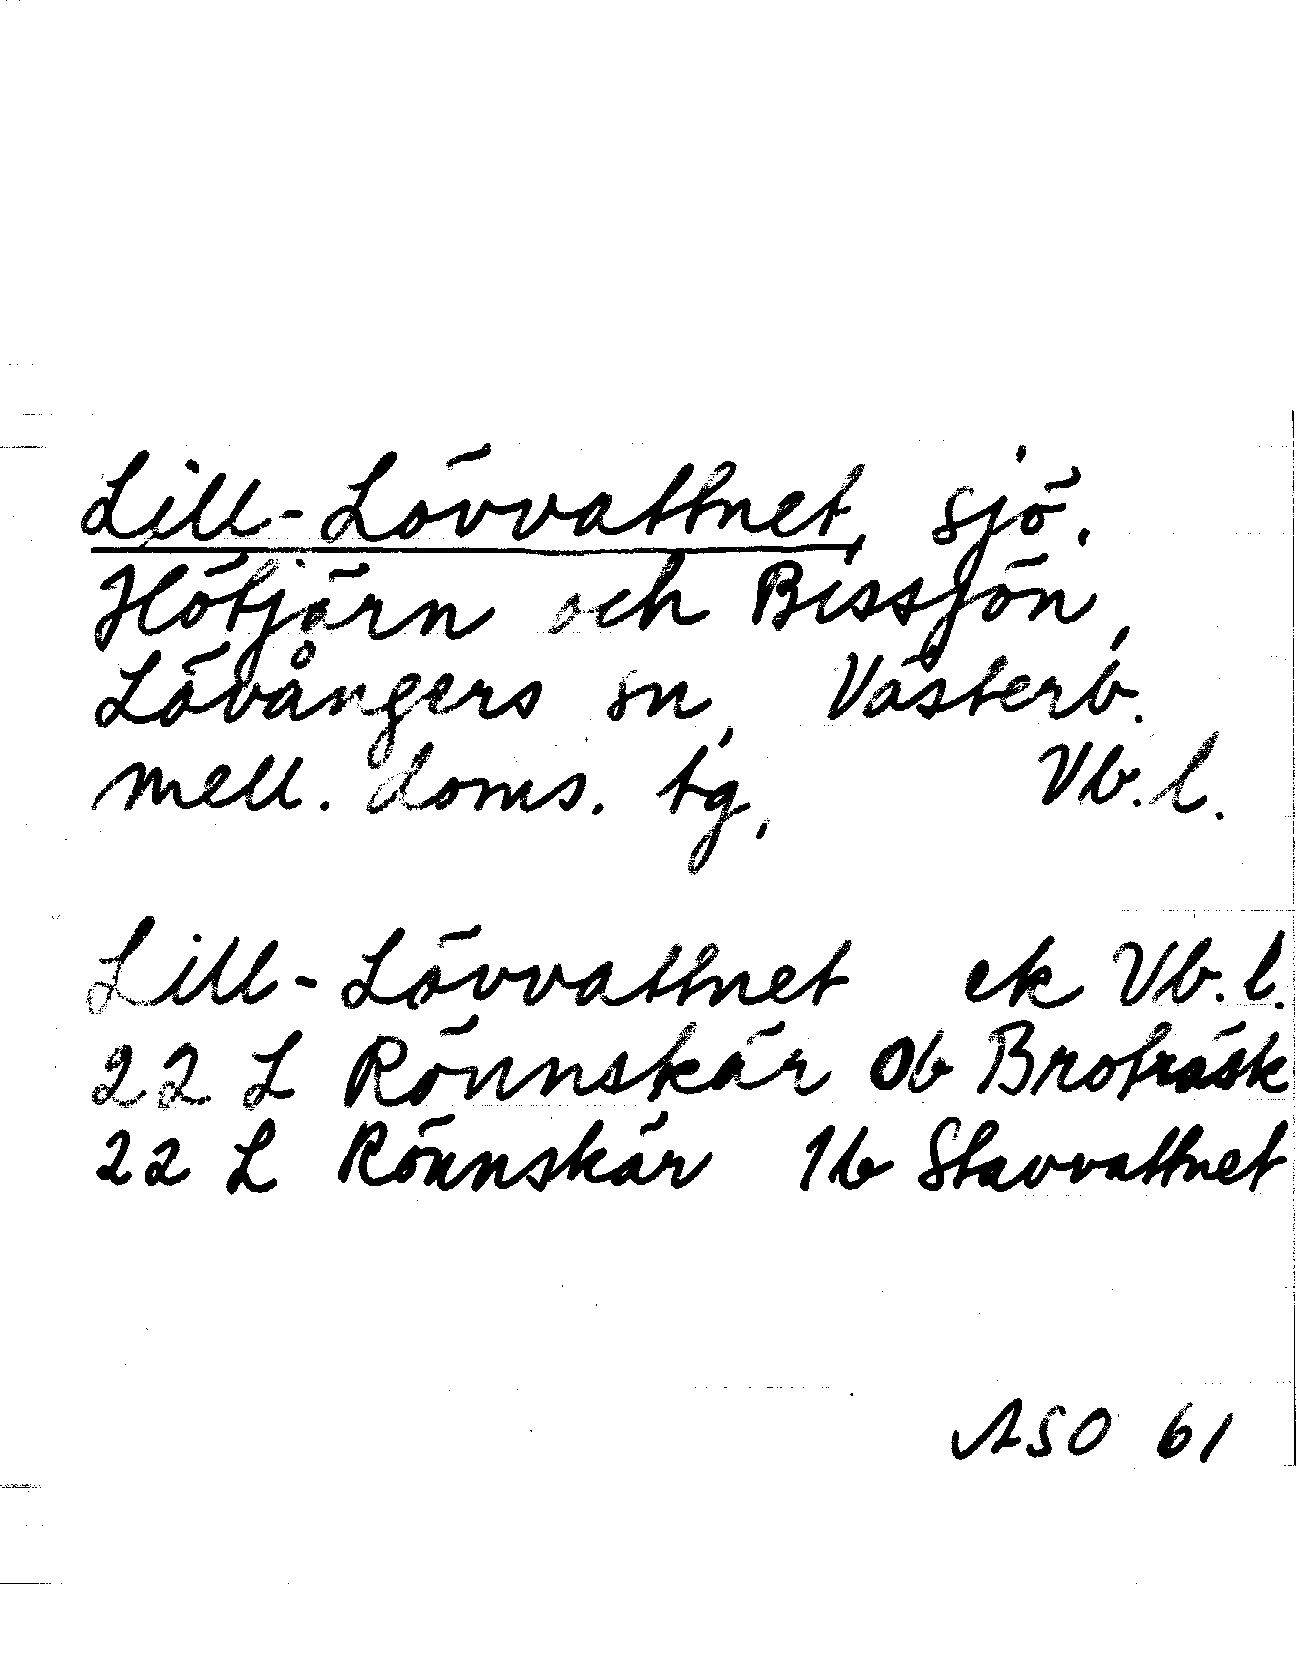 Lill-Lövvattnet, sjö.
Hötjärn och Bissjön,
Lövångers sn, Västerb.
mell. doms. tg, Vb. l.
Lill-Lövvattnet ek Vb. l.
22 L Rönnskär 0b Broträsk
22 L Rönnskär 1b Stavvattnet
ASO 61